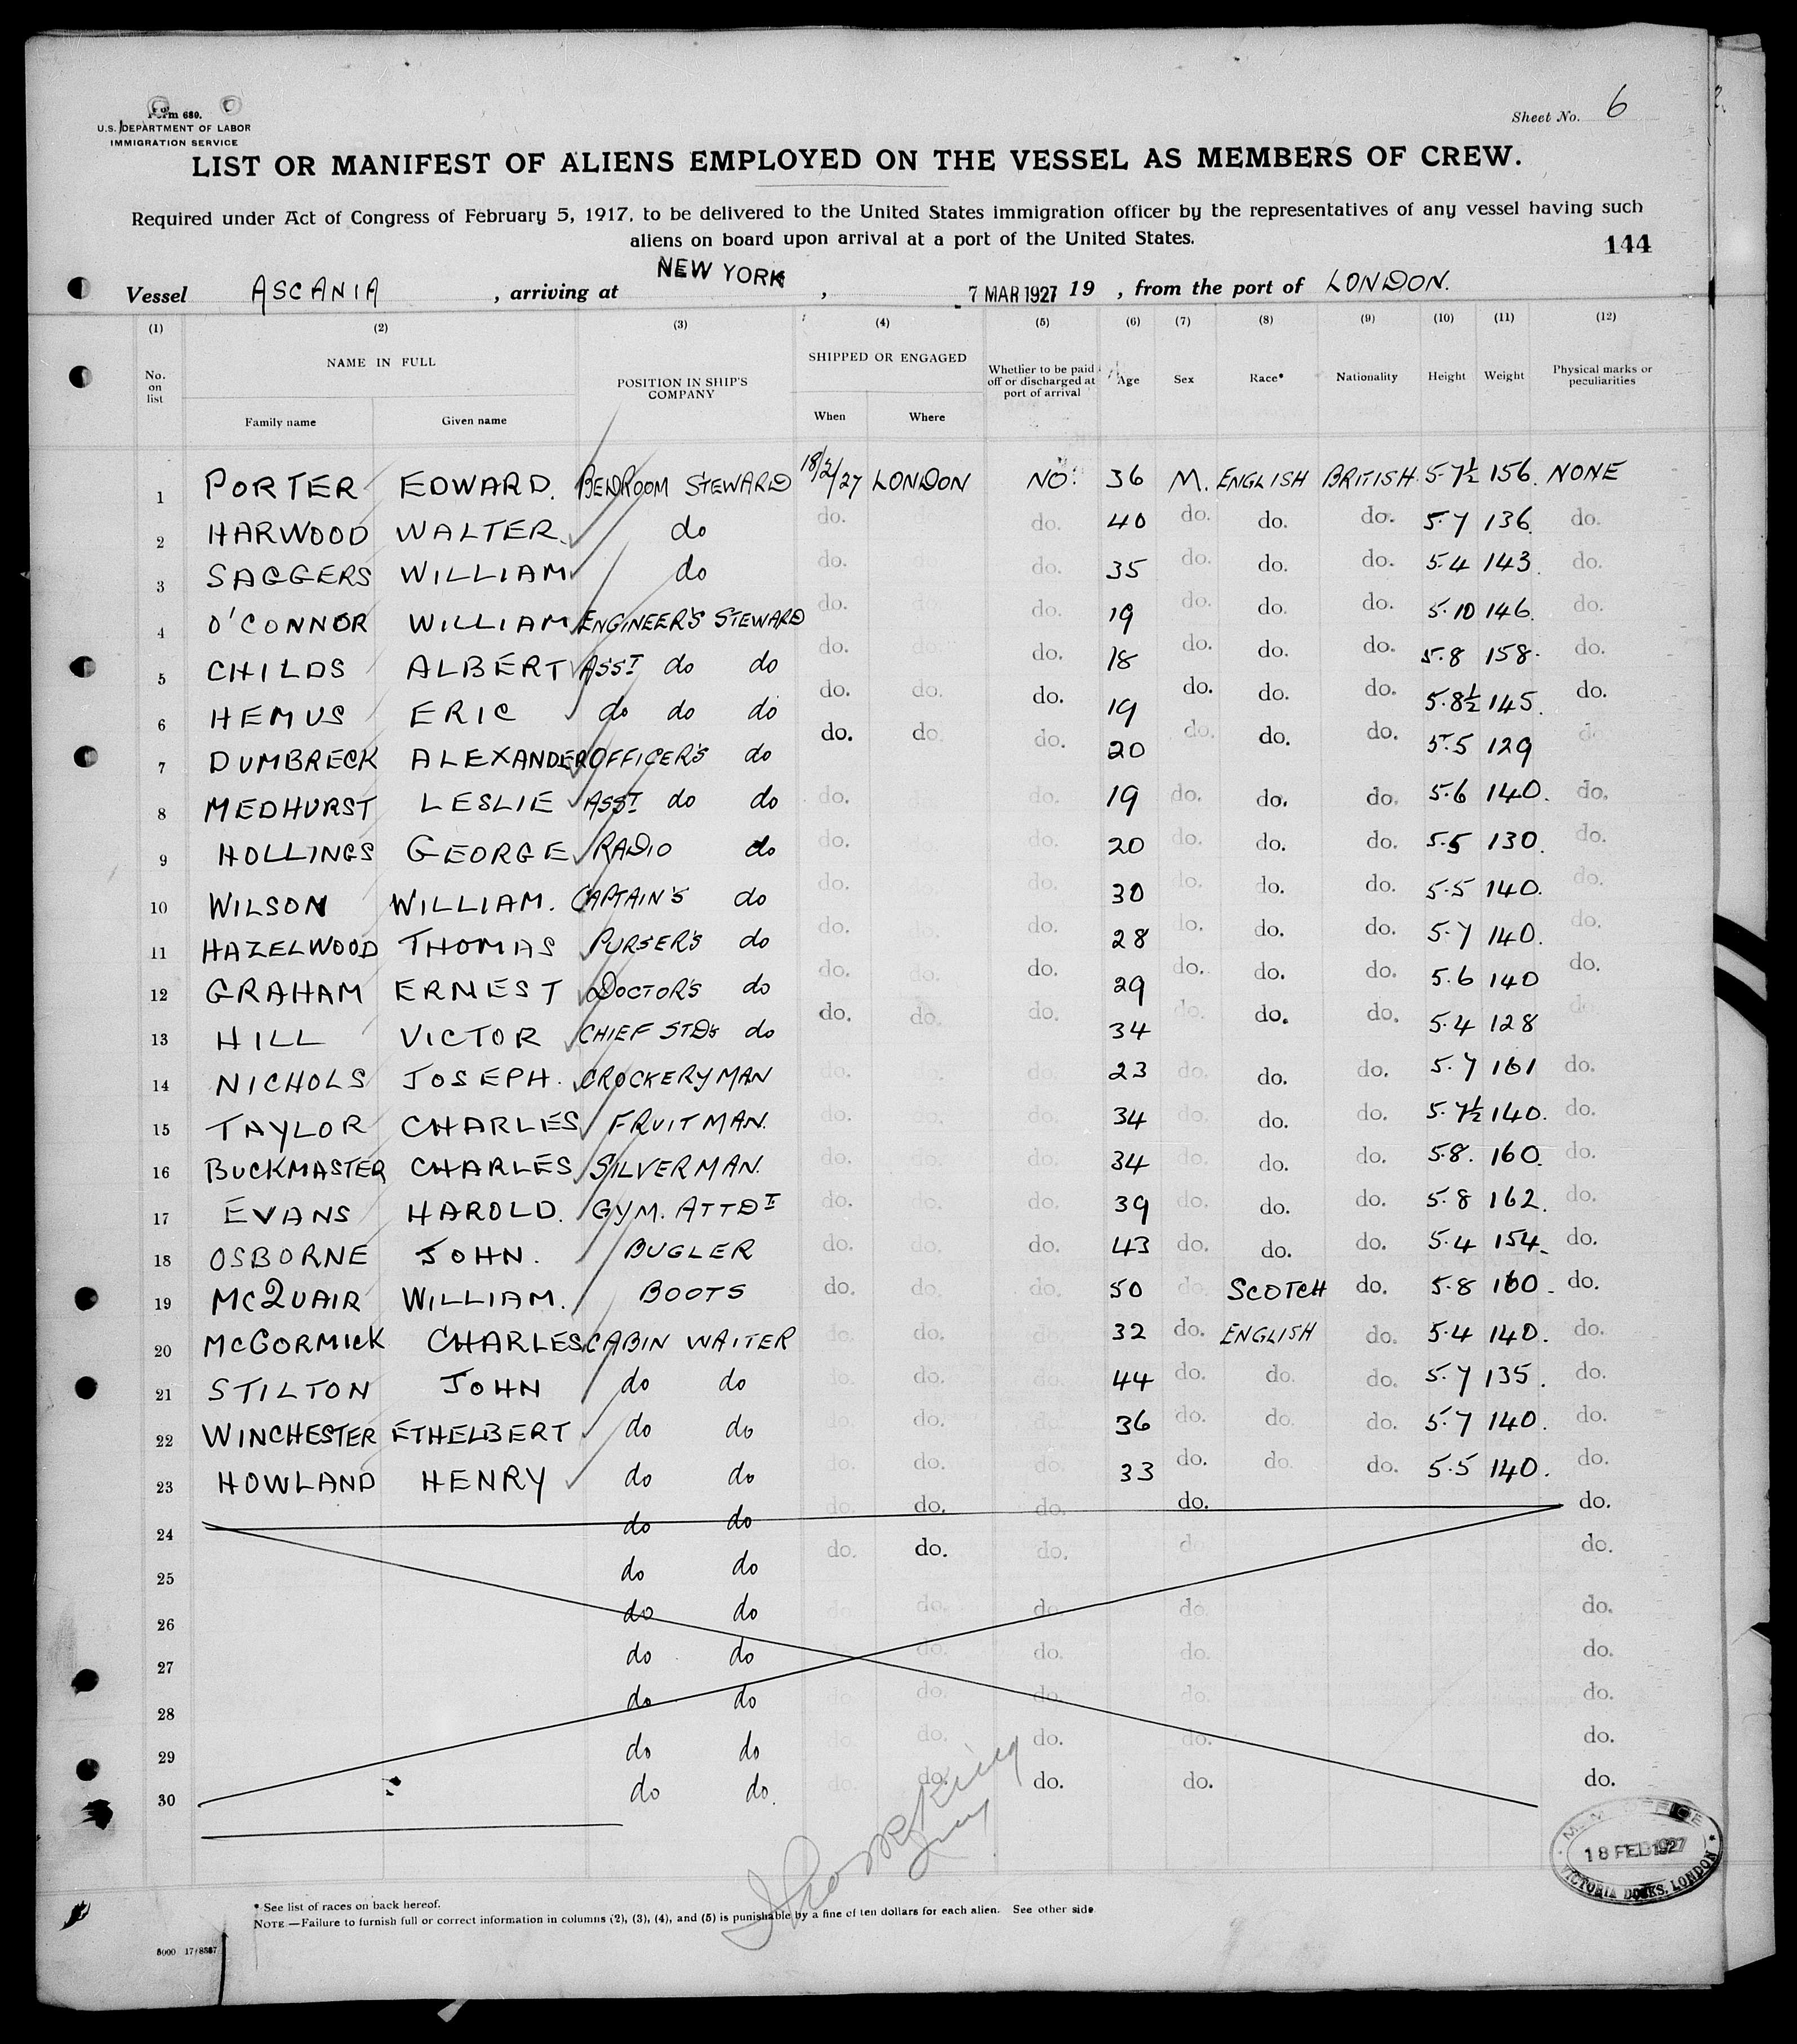 Form 680.
U.S. DEPARTMENT OF LABOR
IMMIGRATION SERVICE
Sheet No. 6
LIST OR MANIFEST OF ALIENS EMPLOYED ON THE VESSEL AS MEMBERS OF CREW.
Required under Act of Congress of February 5, 1917, to be delivered to the United States immigration officer by the representatives of any vessel having such
aliens on board upon arrival at a port of the United States.
144
Vessel ASCANIA, arriving at NEW YORK, 7 MAR 1927 19 , from the port of LONDON.
(1) (2) (3) (4) (5) (6) (7) (8) (9) (10) (11) (12)
No. on list NAME IN FULL Family name Given name POSITION IN SHIP'S COMPANY SHIPPED OR ENGAGED When Where Whether to be paid off or discharged at port of arrival Age Sex Race* Nationality Height Weight Physical marks or peculiarities
1 PORTER EDWARD. BEDROOM STEWARD 18/2/27 LONDON NO. 36 M. ENGLISH BRITISH 5-7½ 156. NONE
2 HARWOOD WALTER. do do. do. 40 do. do. do. 5.7 136. do.
3 SAGGERS WILLIAM do do. do. 35 do. do. do. 5.4 143. do.
4 O'CONNOR WILLIAM ENGINEER'S STEWARD do. do. do. 19 do. do. do. 5.10 146. do.
5 CHILDS ALBERT ASST do do do. do. do. 18 do. do. do. 5.8 158. do.
6 HEMUS ERIC do do do do. do. do. 19 do. do. do. 5.8½ 145. do.
7 DUMBRECK ALEXANDER OFFICER'S do do. do. do. 20 do. do. do. 5.5 129 do
8 MEDHURST LESLIE ASST do do do. do. 19 do. do. do. 5.6 140. do.
9 HOLLINGS GEORGE RADIO do do. do. 20 do. do. do. 5.5 130. do.
10 WILSON WILLIAM. CAPTAIN'S do do. do. 30 do. do. do. 5.5 140. do.
11 HAZELWOOD THOMAS PURSER'S do do. do. 28 do. do. do. 5.7 140. do.
12 GRAHAM ERNEST DOCTOR'S do do. do. do. 29 do. do. do. 5.6 140 do.
13 HILL VICTOR CHIEF STD'S do do. do. do. 34 do. do. do. 5.4 128 do
14 NICHOLS JOSEPH. CROCKERYMAN do. do. do. 23 do. do. do. 5.7 161 do.
15 TAYLOR CHARLES FRUITMAN. do. do. do. 34 do. do. do. 5.7½ 140. do.
16 BUCKMASTER CHARLES SILVERMAN. do. do. do. 34 do. do. do. 5.8. 160. do.
17 EVANS HAROLD. GYM. ATTDT do. do. do. 39 do. do. do. 5.8 162. do.
18 OSBORNE JOHN. BUGLER do. do. do. 43 do. do. do. 5.4 154. do.
19 McQUAIR WILLIAM. BOOTS do. do. do. 50 do SCOTCH do. 5.8 160. do.
20 McCORMICK CHARLES CABIN WAITER do. do. do 32 do. ENGLISH do. 5.4 140. do.
21 STILTON JOHN do do do. do. do. 44 do. do. do. 5.7 135. do.
22 WINCHESTER ETHELBERT do do do. do. do. 36 do. do. do. 5.7 140. do.
23 HOWLAND HENRY do do do. do. do. 33 do. do. do. 5.5 140. do.
24 do do do. do. do. do. do.
25 do do do. do. do. d do.
26 do do do. do. do. do. do.
27 do do do. do. do. do.
28 do do do. do. do. do. do.
29 do do do. do. do. do. do.
30 do do. do. do. do. do. do.
18 FEB 1927
VICTORIA DOCKS, LONDON
* See list of races on back hereof.
NOTE.—Failure to furnish full or correct information in columns (2), (3), (4), and (5) is punishable by a fine of ten dollars for each alien. See other side